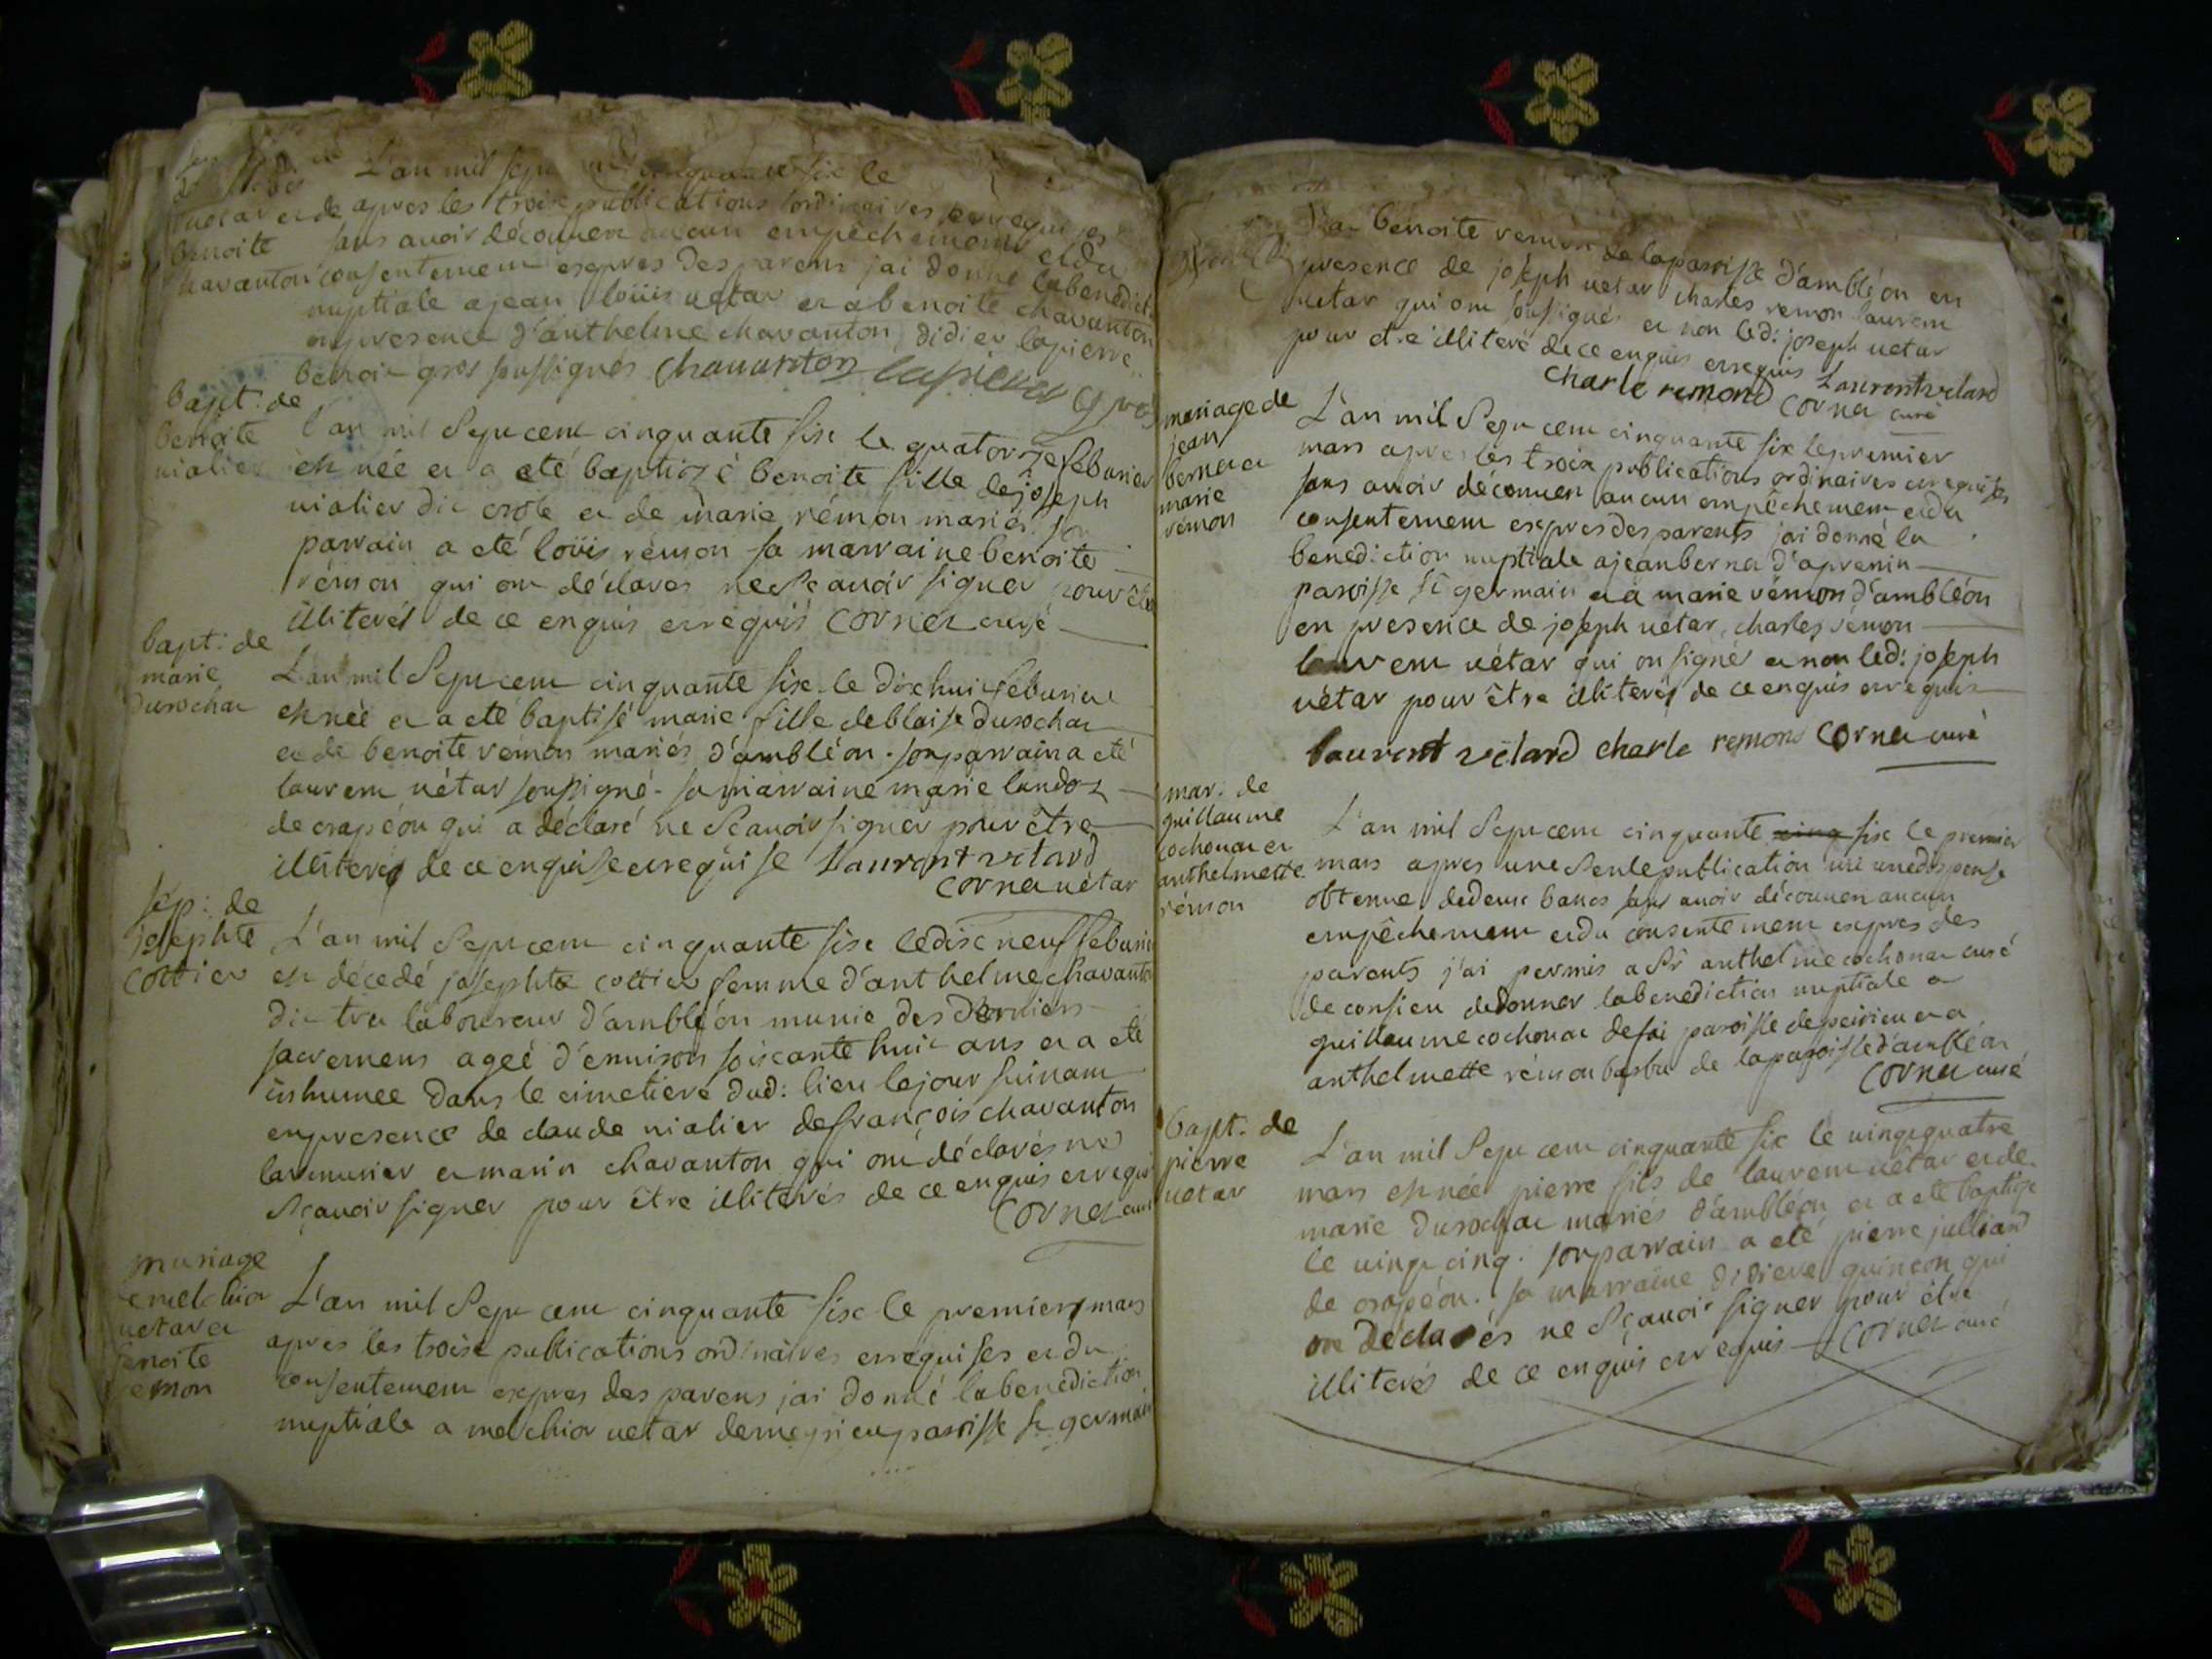 L'an mil sept cent cinquante six le
uetar et de apres les trois publications ordinaires et requises
benoite sans avoir découvert aucun empêchement et du
chavanton consentement expres des parens jai donné la benedict.
nuptiale a jean loüis uetar et a benoite chavanton
en presence d'anthelme chavanton, didier lapierre
benoit gros soussignés chavanton lapierre gros
bapt. de
benoite
uialier
l'an mil sept cent cinquante six le quatorze feburier
est née et a eté baptizé benoite fille de joseph
uialier dit crote et de marie rémon mariés son
parrain a eté loüis rémon sa marraine benoite
rémon qui ont déclarés ne scavoir signer pour être
illiterés de ce enquis et requis cornet curé
bapt: de
marie
durochat
L'an mil sept cent cinquante six le dix huit feburier
est née et a eté baptisé marie fille de blaise durochat
et de benoite rémon mariés d'ambléon. son parrain a eté
laurent uétar soussigné. sa marraine marie landoz
de crapéou qui a déclaré ne scavoir signer pour être
illiterés de ce enquise et requise Laurent vetard
cornet uétar
sep: de
josephte
cottier
L'an mil sept cent cinquante six le dix neuf feburier
est décedé josephte cottier femme d'anthelme chavanton
dit tru laboureur d'ambléon munie des derniers
sacremens ageé d'enuiron soixante huit ans et a eté
inhumee dans le cimetiere dud: lieu le jour suiuant
en presence de claude uialier de françois chavanton
larmurier et marin chavanton qui ont déclarés ne
sçavoir signer pour être illiterés de ce enquis et requis
cornet curé
mariage
melchior
uetar et
benoite
remon
L'an mil sept cent cinquante six le premier mars
apres les trois publications ordinaires et requises et du
consentement expres des parens jai donné la benediction
nuptiale a melchior uetar de meyrieu paroisse st germain
et a benoite remon de la paroisse d'ambléon en
presence de joseph uetar charles remon laurent
uetar qui ont soussignés et non led: joseph uetar
pour etre illiteré de ce enquis et requis
charle remond Laurent vetard
cornet curé
mariage de
jean
bernet et
marie
rémon
L'an mil sept cent cinquante six le premier
mars apres les trois publications ordinaires et requises
sans avoir découvert aucun empêchement et du
consentement expres des parents jai donné la
benediction nuptiale a jean bernet d'aprenin
paroisse st germain et a marie rémon d'ambléon
en presence de joseph uétar, charles rémon
laurent uétar qui on signé et non led: joseph
uétar pour être illiterés de ce enquis et requis
laurent vétard charle remond cornet curé
mar. de
guillaume
cochonat et
anthelmette
rémon
L'an mil sept cent cinquante cinq six le premier
mars apres une seule publication uû une dispense
obtenue de deux bancs sans avoir découvert aucun
empêchement et du consentement expres des
parents j'ai permis a sr anthelme cochonat curé
de consieu de donner la benediction nuptiale a
guillaume cochonat de fai paroisse de peirieu et a
anthelmette rémon barbu de la paroisse d'ambléon
cornet curé
bapt. de
pierre
uetar
L'an mil sept cent cinquante six le uingt quatre
mars est née pierre fils de laurent uétar et de
marie durochat mariés d'ambléon et a eté baptizé
le uingt cinq. son parrain a eté pierre julliard
de crapéou. sa marraine didiere guincon qui
on déclarés ne sçavoir signer pour être
illiterés de ce enquis et requis cornet curé